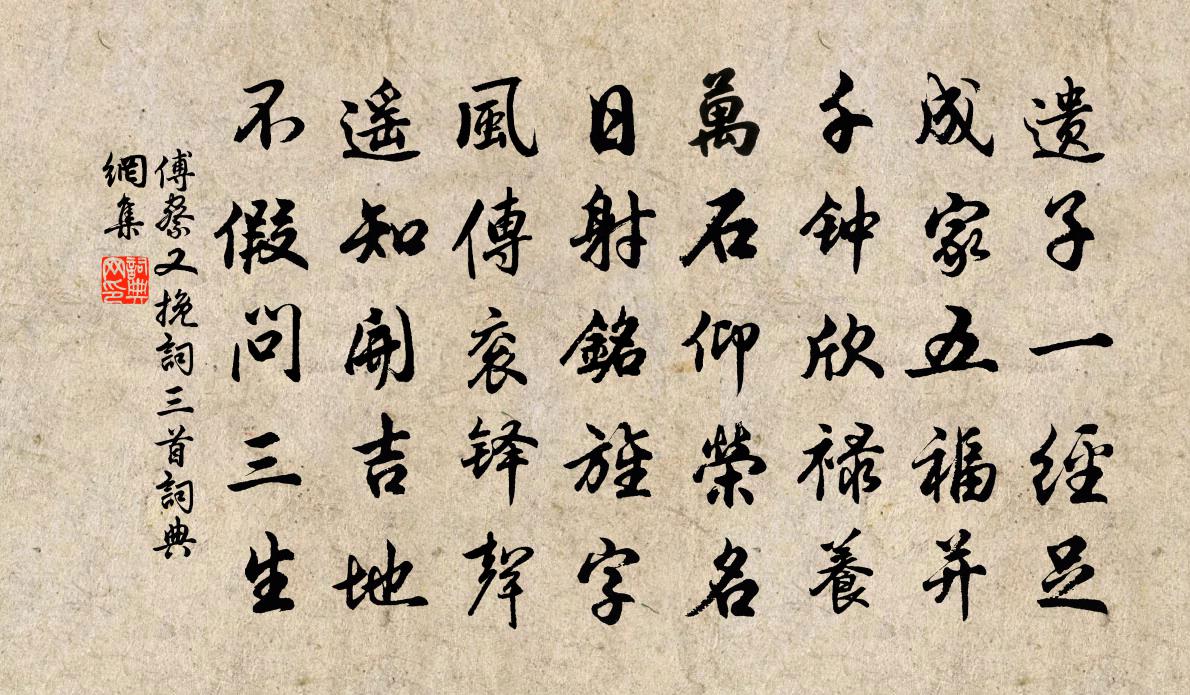 遗子一經足
成家五福并
千钟欣禄養
萬石仰榮名
日射銘旌字
風傳衮铎聲
遥知開吉地
不假問三生
傅察又挽詞三首詞典
網集
詞典
网印